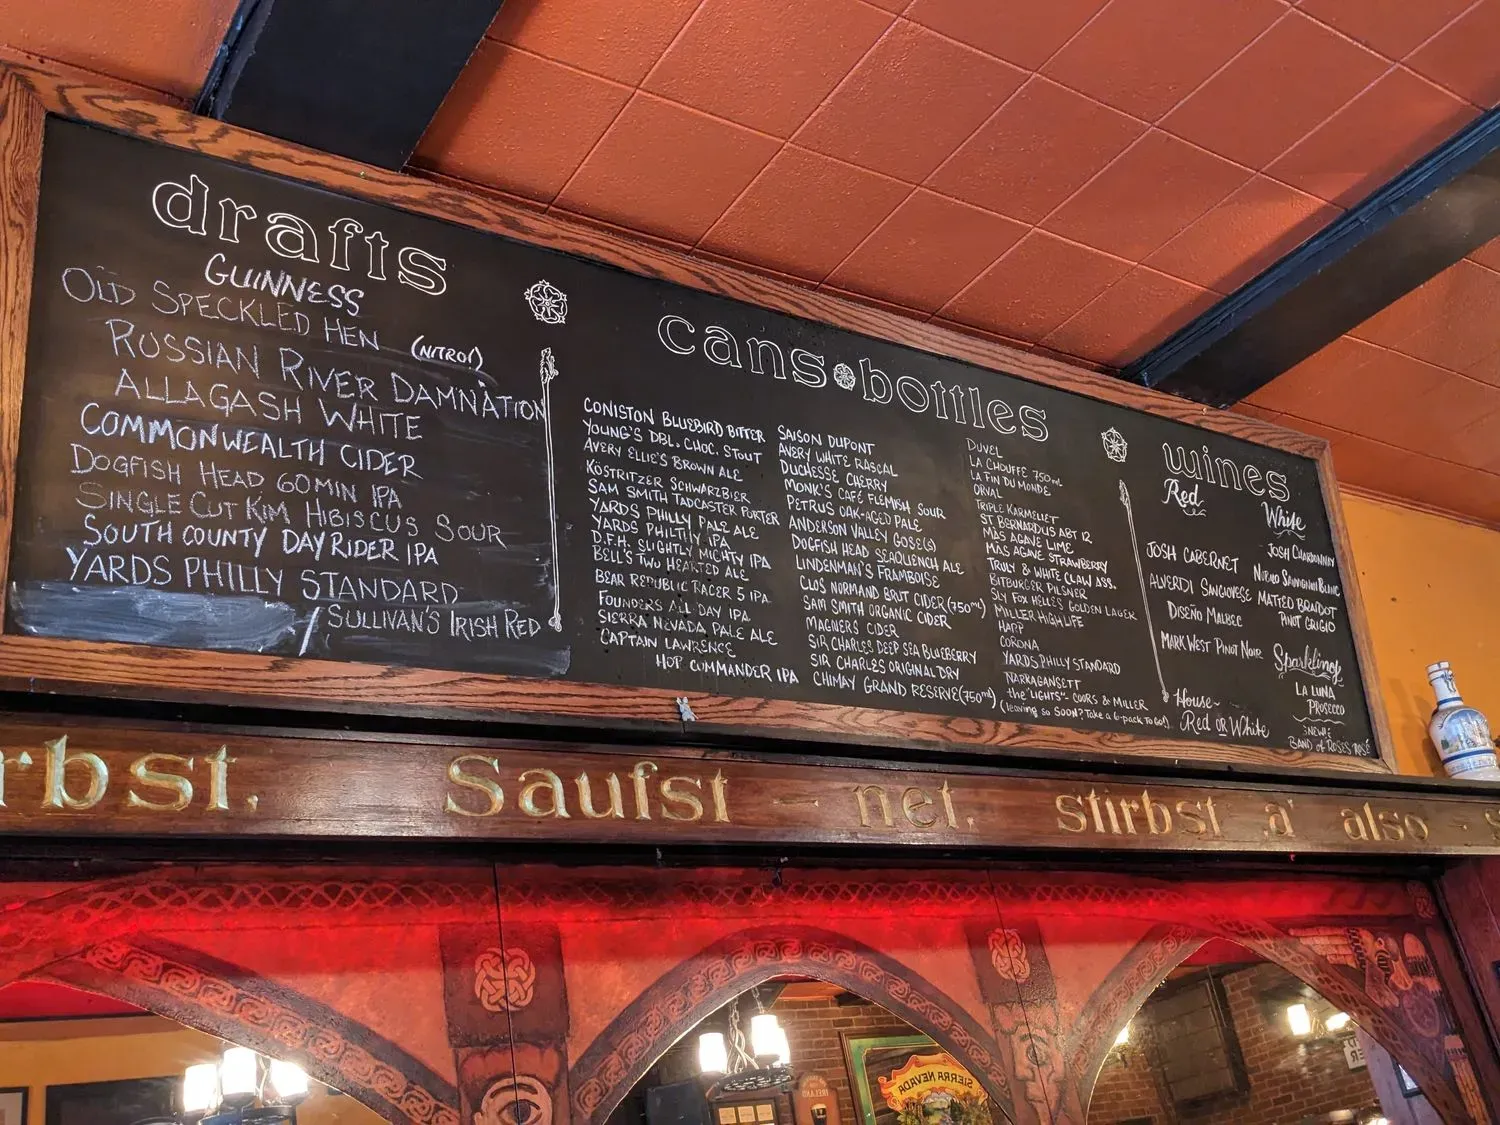 drafts
GUINNESS
OLD SPECKLED HEN (NITRO!)
RUSSIAN RIVER DAMNATION
ALLAGASH WHITE
COMMONWEALTH CIDER
DOGFISH HEAD 60 MIN IPA
SINGLE CUT KIM HIBISCUS SOUR
SOUTH COUNTY DAY RIDER IPA
YARDS PHILLY STANDARD
/ SULLIVAN'S IRISH RED
cans bottles
CONISTON BLUEBIRD BITTER
YOUNG'S DBL. CHOC. STOUT
AVERY ELLIE'S BROWN ALE
KÖSTRITZER SCHWARZBIER
SAM SMITH TADCASTER PORTER
YARDS PHILLY PALE ALE
YARDS IPA
D.F.H. SLIGHTLY MIGHTY IPA
BELL'S TWO HEARTED ALE
BEAR REPUBLIC RACER 5 IPA
FOUNDERS ALL DAY IPA
SIERRA NEVADA PALE ALE
CAPTAIN LAWRENCE
HOP COMMANDER IPA
SAISON DUPONT
AVERY WHITE RASCAL
DUCHESSE CHERRY
MONK'S CAFÉ FLEMISH SOUR
PETRUS OAK-AGED PALE
ANDERSON VALLEY GOSE(S)
DOGFISH HEAD SEAQUENCH ALE
LINDENMAN'S FRAMBOISE
CLOS NORMAND BRUT CIDER (750ml)
SAM SMITH ORGANIC CIDER
MAGNERS CIDER
SIR CHARLES DEEP SEA BLUEBERRY
SIR CHARLES ORIGINAL DRY
CHIMAY GRAND RESERVE (750ml)
DUVEL
LA CHOUFFE 750ml
LA FIN DU MONDE
ORVAL
TRIPLE KARMELIET
ST BERNARDUS ABT 12
MAS AGAVE LIME
MAS AGAVE STRAWBERRY
TRULY & WHITE CLAW ASS.
BITBURGER PILSNER
SLY FOX HELLES GOLDEN LAGER
MILLER HIGH LIFE
HAPP
CORONA
YARDS PHILLY STANDARD
NARKAGANSETT
the "LIGHTS" - COORS & MILLER
(leaving so SOON? Take a 6-pack TO GO!)
wines
Red
JOSH CABERNET
ALVERDI SANGIOVESE
DISEÑO MALBEC
MARK WEST PINOT NOIR
House~
Red OR White
White
JOSH CHARDONNAY
SAUVIGNON BLANC
MATTEO BRAIDOT
PINOT GRIGIO
Sparkling
LA LUNA
PROSECCO
NEW!
BAND of ROSES ROSÉ
rbst. Saufst - net. stirbst a' also - s
SIERRA NEVADA
IRELAND